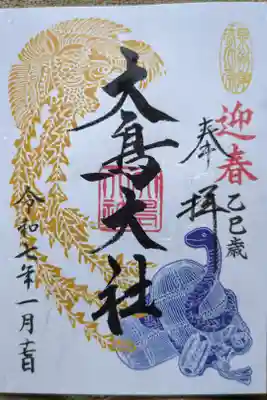 迎春
乙巳歳
奉拝
大鳥大社
令和七年一月